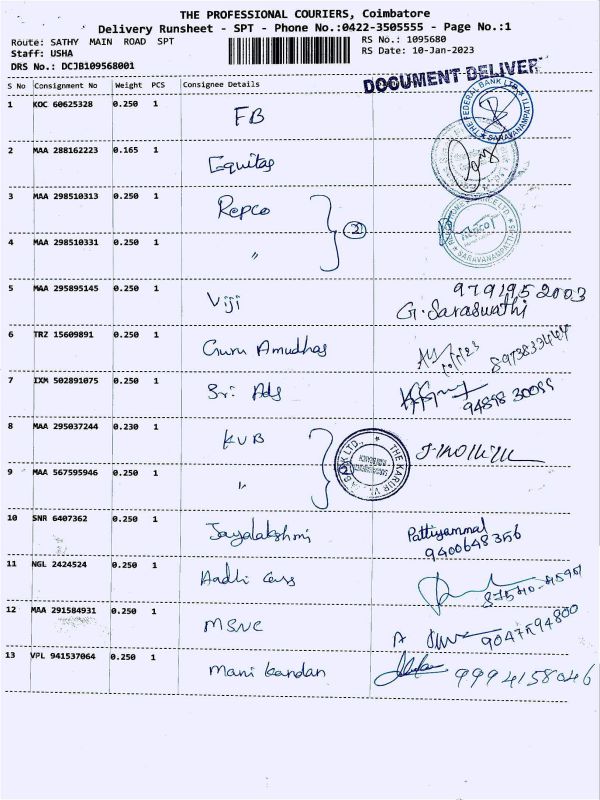 THE PROFESSIONAL COURIERS, Coimbatore
Delivery Runsheet - SPT - Phone No.:0422-3505555 - Page No.:1
Route: SATHY MAIN ROAD SPT
RS No.: 1095680
Staff: USHA
RS Date: 10-Jan-2023
DRS No.: DCJB109568001
DOCUMENT DELIVER
S No Consignment No Weight PCS Consignee Details
1 KOC 60625328 0.250 1 FB
THE FEDERAL BANK LTD. SARAVANAMPATTI
2 MAA 288162223 0.165 1 Equitas
3 MAA 298510313 0.250 1 Repco
2
SARAVANAMPATTI
4 MAA 298510331 0.250 1 "
5 MAA 295895145 0.250 1 Viji 9791952003
G. Saraswathi
6 TRZ 15609891 0.250 1 Guru Amudhas
7 IXM 502891075 0.250 1 Sri Ads
8 MAA 295037244 0.230 1 KVB
THE KARUR BANK LTD.
9 MAA 567595946 0.250 1 "
10 SNR 6407362 0.250 1 Jayalakshmi Pattiyammal
9400648356
11 NGL 2424524 0.250 1 Aadhi Cars
12 MAA 291584931 0.250 1 MSNC
13 VPL 941537064 0.250 1 Mani kandan 9994158046